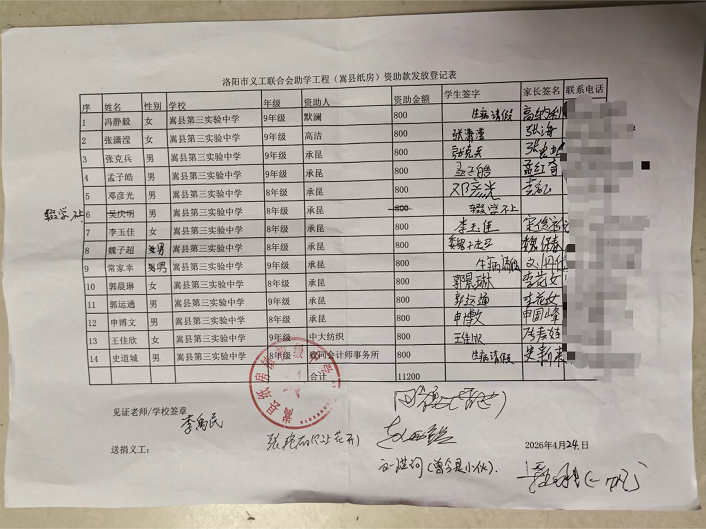 洛阳市义工联合会助学工程（嵩县纸房）资助款发放登记表
序 姓名 性别 学校 年级 资助人 资助金额 学生签字 家长签名 联系电话
1 冯静毅 女 嵩县第三实验中学 9年级 默澜 800 生病请假
2 张潇滢 女 嵩县第三实验中学 9年级 高洁 800 张潇滢 张海
3 张克兵 男 嵩县第三实验中学 9年级 承昆 800 张克兵
4 孟子皓 男 嵩县第三实验中学 9年级 承昆 800 孟子皓 孟红奇
5 邓彦光 男 嵩县第三实验中学 8年级 承昆 800 邓彦光
辍学不上 6 吴庆明 男 嵩县第三实验中学 8年级 承昆 800 辍学不上
7 李玉佳 女 嵩县第三实验中学 8年级 承昆 800 李玉佳
8 魏子超 男 嵩县第三实验中学 8年级 承昆 800 魏子超 魏保春
9 常家幸 男 嵩县第三实验中学 9年级 承昆 800 生病请假
10 郭晨琳 女 嵩县第三实验中学 8年级 承昆 800 郭晨琳 李花女
11 郭运通 男 嵩县第三实验中学 8年级 承昆 800 郭运通 李花女
12 申博文 男 嵩县第三实验中学 8年级 承昆 800 申博文 申国峰
13 王佳欣 女 嵩县第三实验中学 9年级 中大纺织 800 王佳欣
14 史道城 男 嵩县第三实验中学 8年级 会计师事务所 800 生病请假 史新来
合计 11200
见证老师/学校签章 李禹民
送捐义工：
2026年4月24日